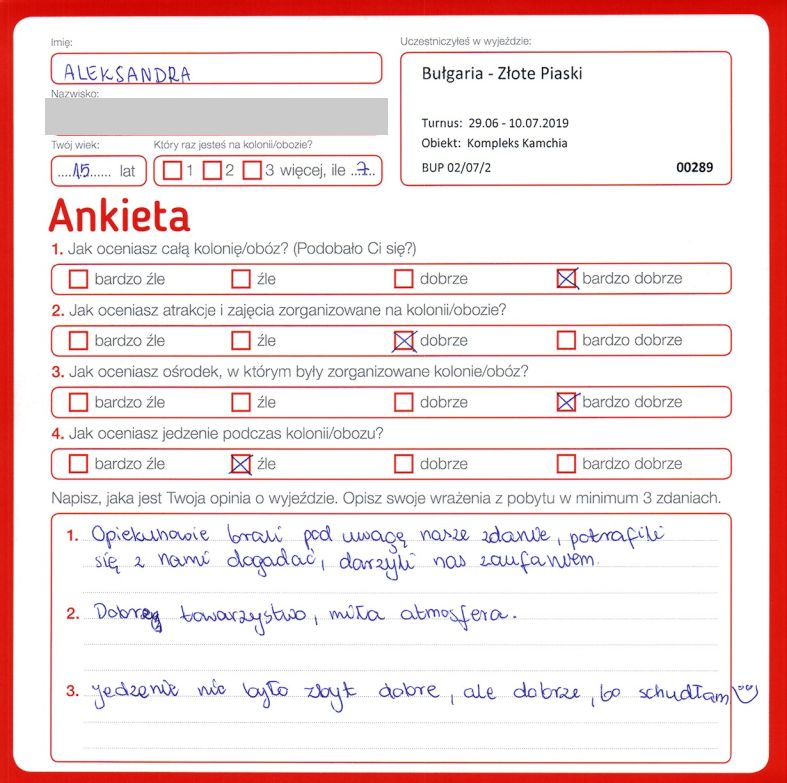 Imię:
ALEKSANDRA
Nazwisko:
Twój wiek:
....15...... lat
Który raz jesteś na kolonii/obozie?
1 2 3 więcej, ile ..7..
Uczestniczyłeś w wyjeździe:
Bułgaria - Złote Piaski
Turnus: 29.06 - 10.07.2019
Obiekt: Kompleks Kamchia
BUP 02/07/2 00289
Ankieta
1. Jak oceniasz całą kolonię/obóz? (Podobało Ci się?)
bardzo źle źle dobrze bardzo dobrze
2. Jak oceniasz atrakcje i zajęcia zorganizowane na kolonii/obozie?
bardzo źle źle dobrze bardzo dobrze
3. Jak oceniasz ośrodek, w którym były zorganizowane kolonie/obóz?
bardzo źle źle dobrze bardzo dobrze
4. Jak oceniasz jedzenie podczas kolonii/obozu?
bardzo źle źle dobrze bardzo dobrze
Napisz, jaka jest Twoja opinia o wyjeździe. Opisz swoje wrażenia z pobytu w minimum 3 zdaniach.
1. Opiekunowie brali pod uwagę nasze zdanie, potrafili
się z nami dogadać, darzyli nas zaufaniem.
2. Dobre towarzystwo, miła atmosfera.
3. jedzenie nie było zbyt dobre, ale dobrze, bo schudłam